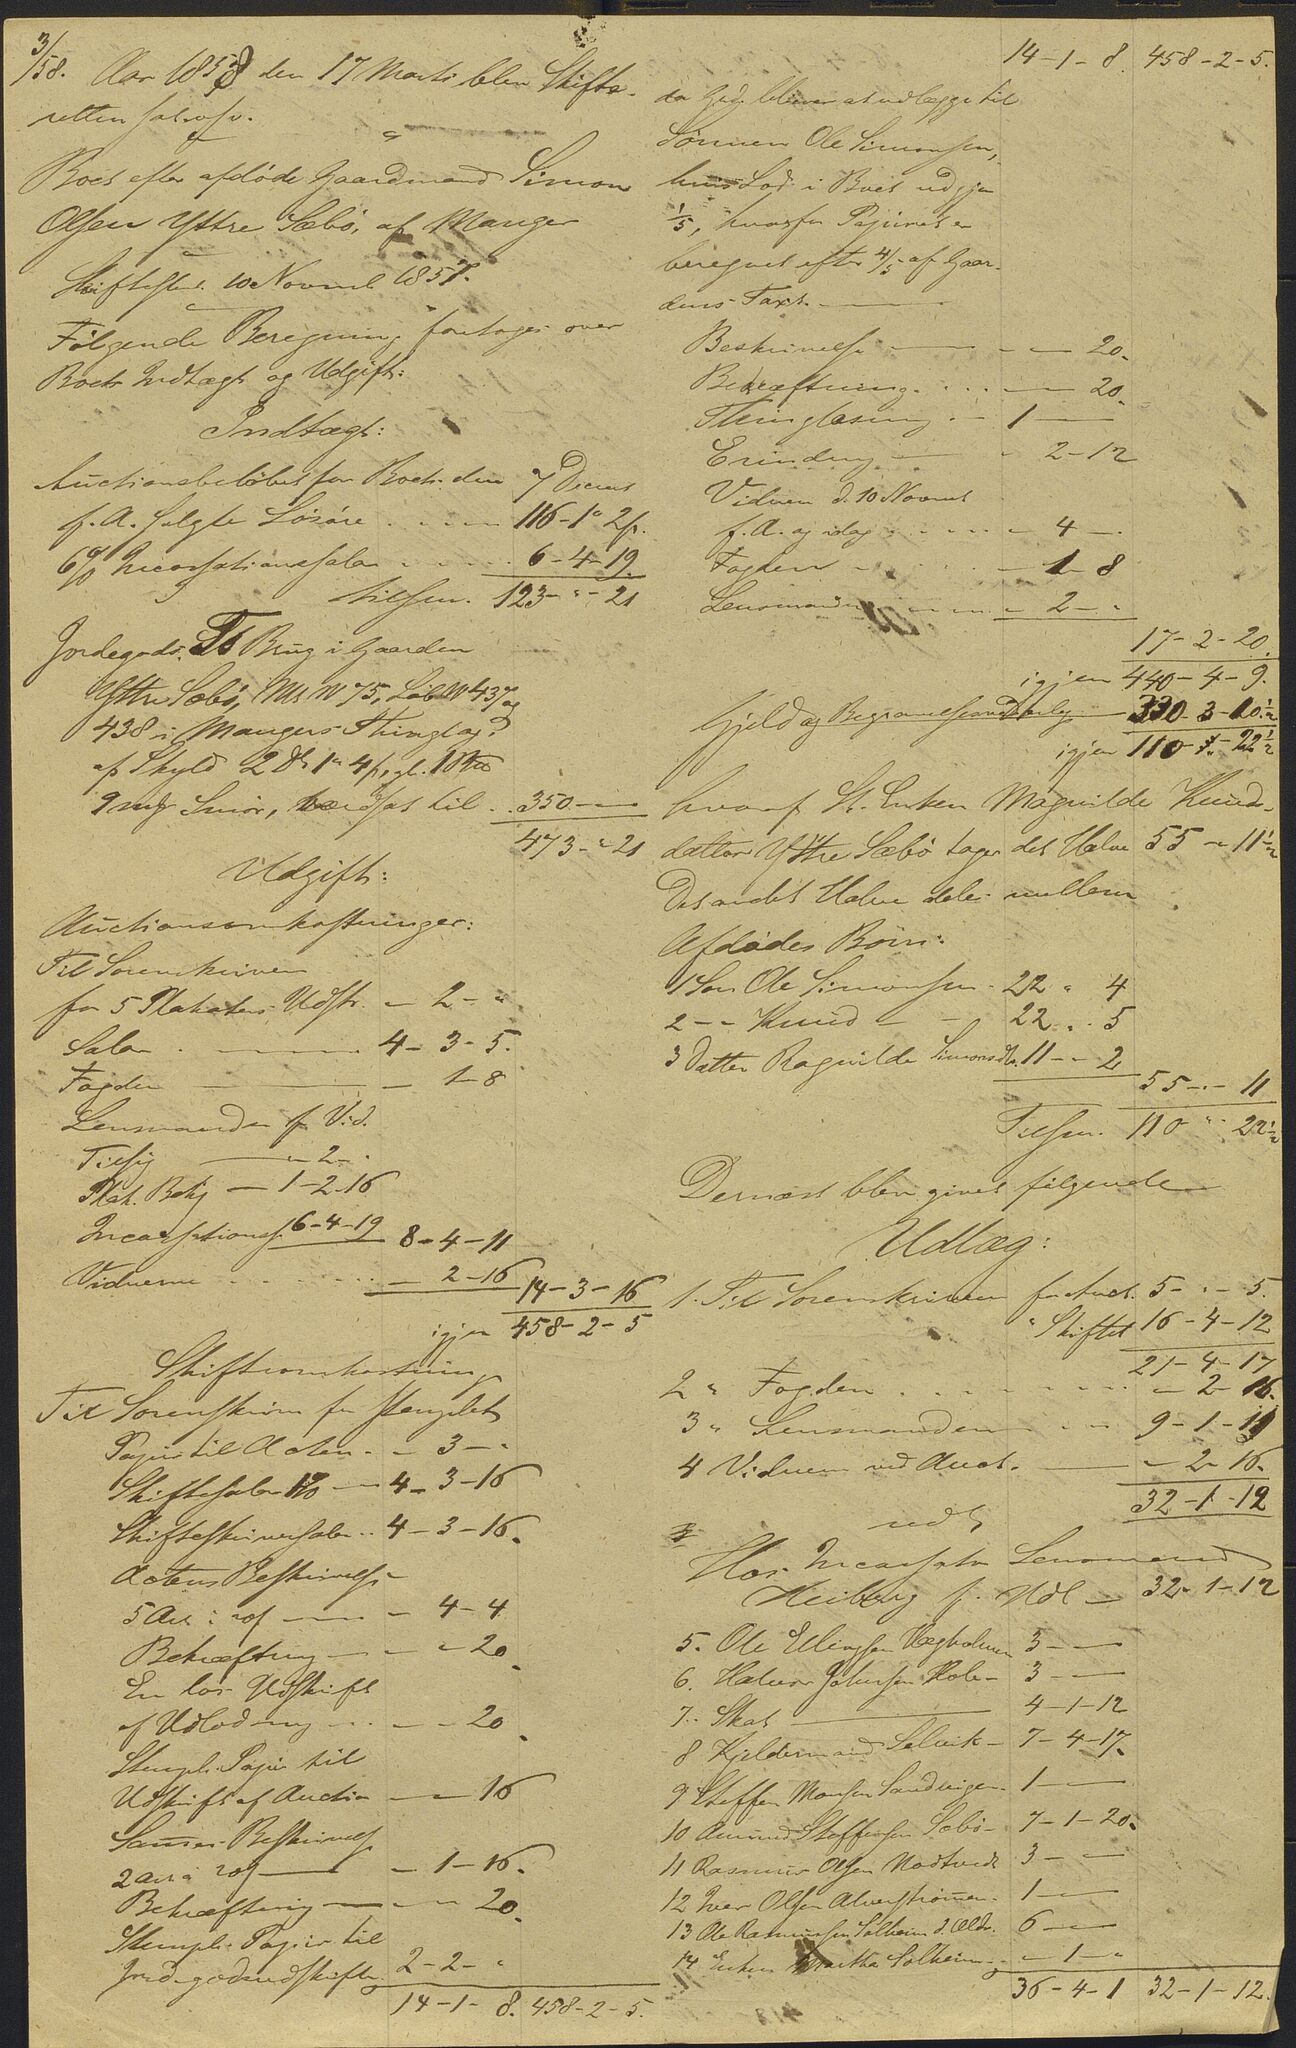 3/58. Aar 1858 den 17 Marts blev Skifte-
retten sat
Boet efter afdøde Gaardmand Simon
Olsen Yttre Sæbø, af Manger
10 Novmb 1857.
Følgende Beregning foretages over
Boets Indtægt og Udgift:
Indtægt:
Auctionsbeløbet for Boets den 7 Decmb
f. A. solgte Løsøre 116-1-2
6% Incassationssalær 6-4-19
tilsm. 123-"-21
Jordegods. Brug i Gaarden
Yttre Sæbø, Mt No 75, Løb No 437 og
438 i Mangers Thinglag
af Skyld 2 1 4
9 Smør, til 350 —
473-"-21
Udgift:
Auctionsomkostninger:
Til Sorenskriveren
for 5 Plakaters Udst. - 2 - "
Salær 4-3-5.
Fogden - 1-8
Lensmanden f. Vid.
Tilsig - 2 -
Plak. Bekj - 1-2-16
Incassations 6-4-19 8-4-11
Vidnerne - 2-16 14-3-16
igjen 458-2-5
Skifteomkostning
Til Sorenskriver for stemplet
Papir til Acten - 3 - "
Skiftesalær 1% - 4-3-16
Skifteskriversalær 4-3-16.
Actens Beskrivelse
5 Ark - 4-4
Bekræftning - - 20.
En løs Udskrift
af Udlodning - - 20.
Stempl. Papir til
Udskrift af Auction - - 16
Sammes Beskrivelse
2 ark - 1-16.
Bekræftning - - 20.
Stempl. Papir til
Jordegodsudskrift 2-2-"
14-1-8. 458-2-5.
14-1-8. 458-2-5.
da bliver at udlægge til
Sønnen Ole Simonsen,
hvis Lod i Boet udgjør
1/5, hvorfor Papiret er
beregnet efter 4/5 af Gaar-
dens Taxt.
Beskrivelse - - 20.
Bekræftning - 20.
Thinglæsning - 1 —
Erindring - 2-12
Vidner d. 10 Novmb
f. A. og idag - 4 -
Fogden - 1-8
Lensmanden - 2-"
17-2-20.
igjen 440-4-9.
Gjeld og Begravelses 330-3-10½
igjen 110-"-22½
hvoraf Enken Magnilde Knuds-
datter Yttre Sæbø tager det Halve 55-"-11½
Det andet Halve deles mellem
Afdødes Børn:
1 Søn Ole Simonsen - 22 " 4
2 - " Knud - - 22 " 5
3 Datter Ragnilde Simonsdtr. 11 - " 2
55-"-11
Tilsm. 110 " 22½
Dernæst blev givet følgende
Udlæg:
1. Til Sorenskriveren for Auct. 5-"-5.
" Skiftet 16-4-12
21-4-17
2 " Fogden - 2-16.
3 " Lensmanden 9-1-11
4 Vidner ved Auct. - 2-16.
32-1-12
udl
Hos Incassator Lensmand
Heiberg f. Udl - 32-1-12
5. Ole Ellingsen 3 - —
6. Halvor Johnsen Hole - 3 - —
7. Skat 4-1-12
8 Selvik - 7-4-17.
9 Steffen Monsen Sandvigen - 1 - —
10 Amund Steffensen Sæbø - 7-1-20.
11 Rasmus Olsen Nødtvedt 3 - —
12 Iver Olsen Alverstrømmen - 1 - —
13 Ole Rasmussen Solheim d. Ældr. 6 - —
14 Enken Martha Solheim - 1 - "
36-4-1 32-1-12.